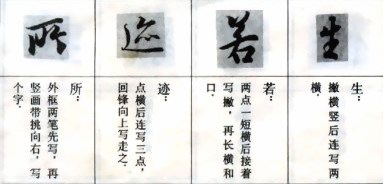 生
生：
撇横竖后连写两
横.
若
若：
两点一短横后接着
写撇，再长横和
口.
迹
迹：
点横后连写三点，
回锋向上写走之.
所
所：
外框两笔先写，再
竖画带挑向右，写
个字.